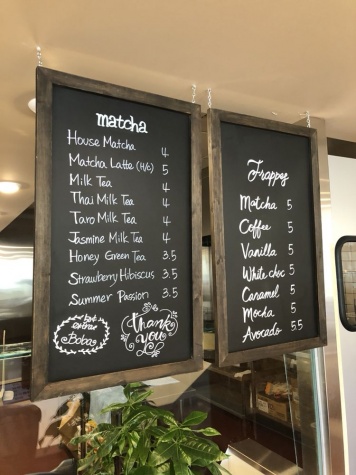 matcha
House Matcha 4
Matcha Latte (H/C) 5
Milk Tea 4
Thai Milk Tea 4
Taro Milk Tea 4
Jasmine Milk Tea 4
Honey Green Tea 3.5
Strawberry Hibiscus 3.5
Summer Passion 3.5
Boba
thank you
Frappes
Matcha 5
Coffee 5
Vanilla 5
White choc 5
Caramel 5
Mocha 5
Avocado 5.5